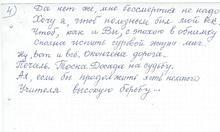 4) Да нет же, мне бессмертия не надо
Хочу я, чтоб полезным был мой век.
Чтоб, как и Вы, с эпохою в обнимку
Сполна испить судьбой жизни
Ну, вот и всё. Окончена дорога.
Печаль. Тоска. Досада на судьбу.
Ах, если бы продолжить хоть немного
Учителя высокую борьбу...